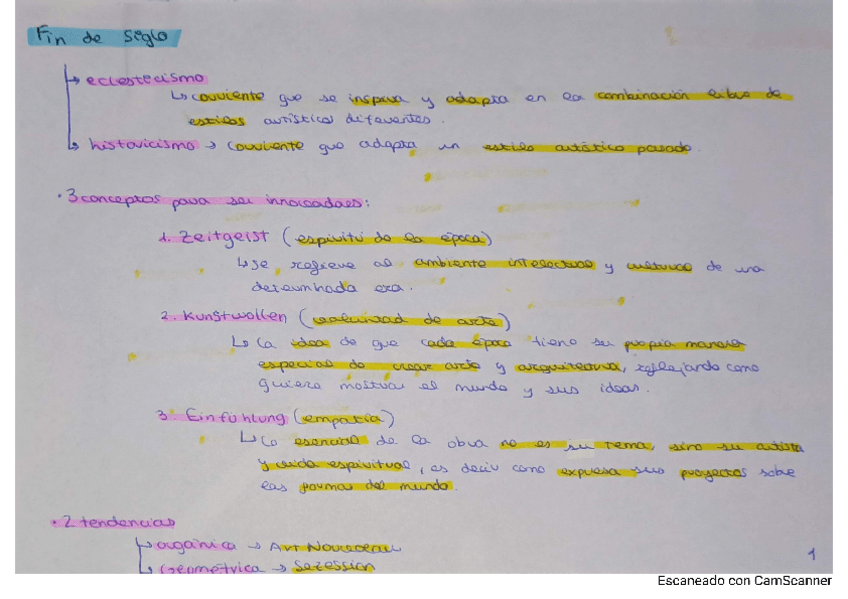 Fin de siglo
↳ eclestecismo
↳ corriente que se inspira y adapta en la combinación libre de
estilos artísticos diferentes.
↳ historicismo → corriente que adapta un estilo artístico pasado.
· 3 conceptos para ser innovadores:
1. Zeitgeist (espíritu de la época)
↳ se refiere al ambiente intelectual y cultural de una
determinada era.
2. Kunstwollen (voluntad de arte)
↳ La idea de que cada época tiene su propia manera
especial de crear arte y arquitectura, reflejando como
quiere mostrar el mundo y sus ideas.
3. Einfühlung (empatía)
↳ La esencia de la obra no es su tema, sino su artista
y vida espiritual, es decir como expresa sus proyectos sobre
las formas del mundo.
· 2 tendencias
↳ orgánica → Art Nouveau
↳ Geométrica → Sezession
1
Escaneado con CamScanner